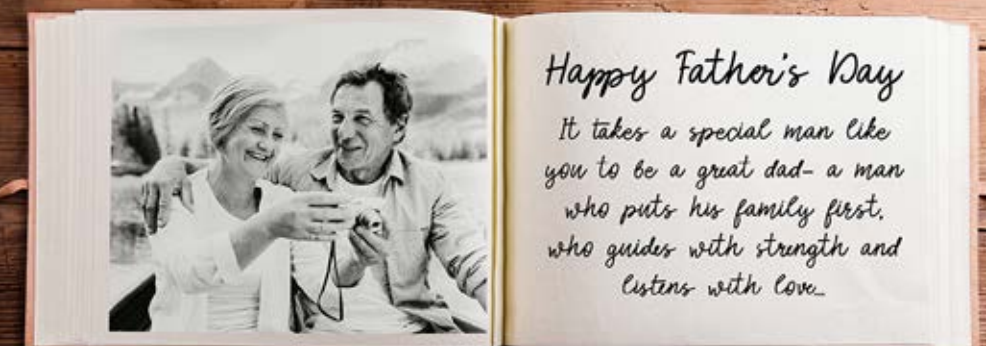 Happy Father's Day
It takes a special man like
you to be a great dad- a man
who puts his family first,
who guides with strength and
listens with love...